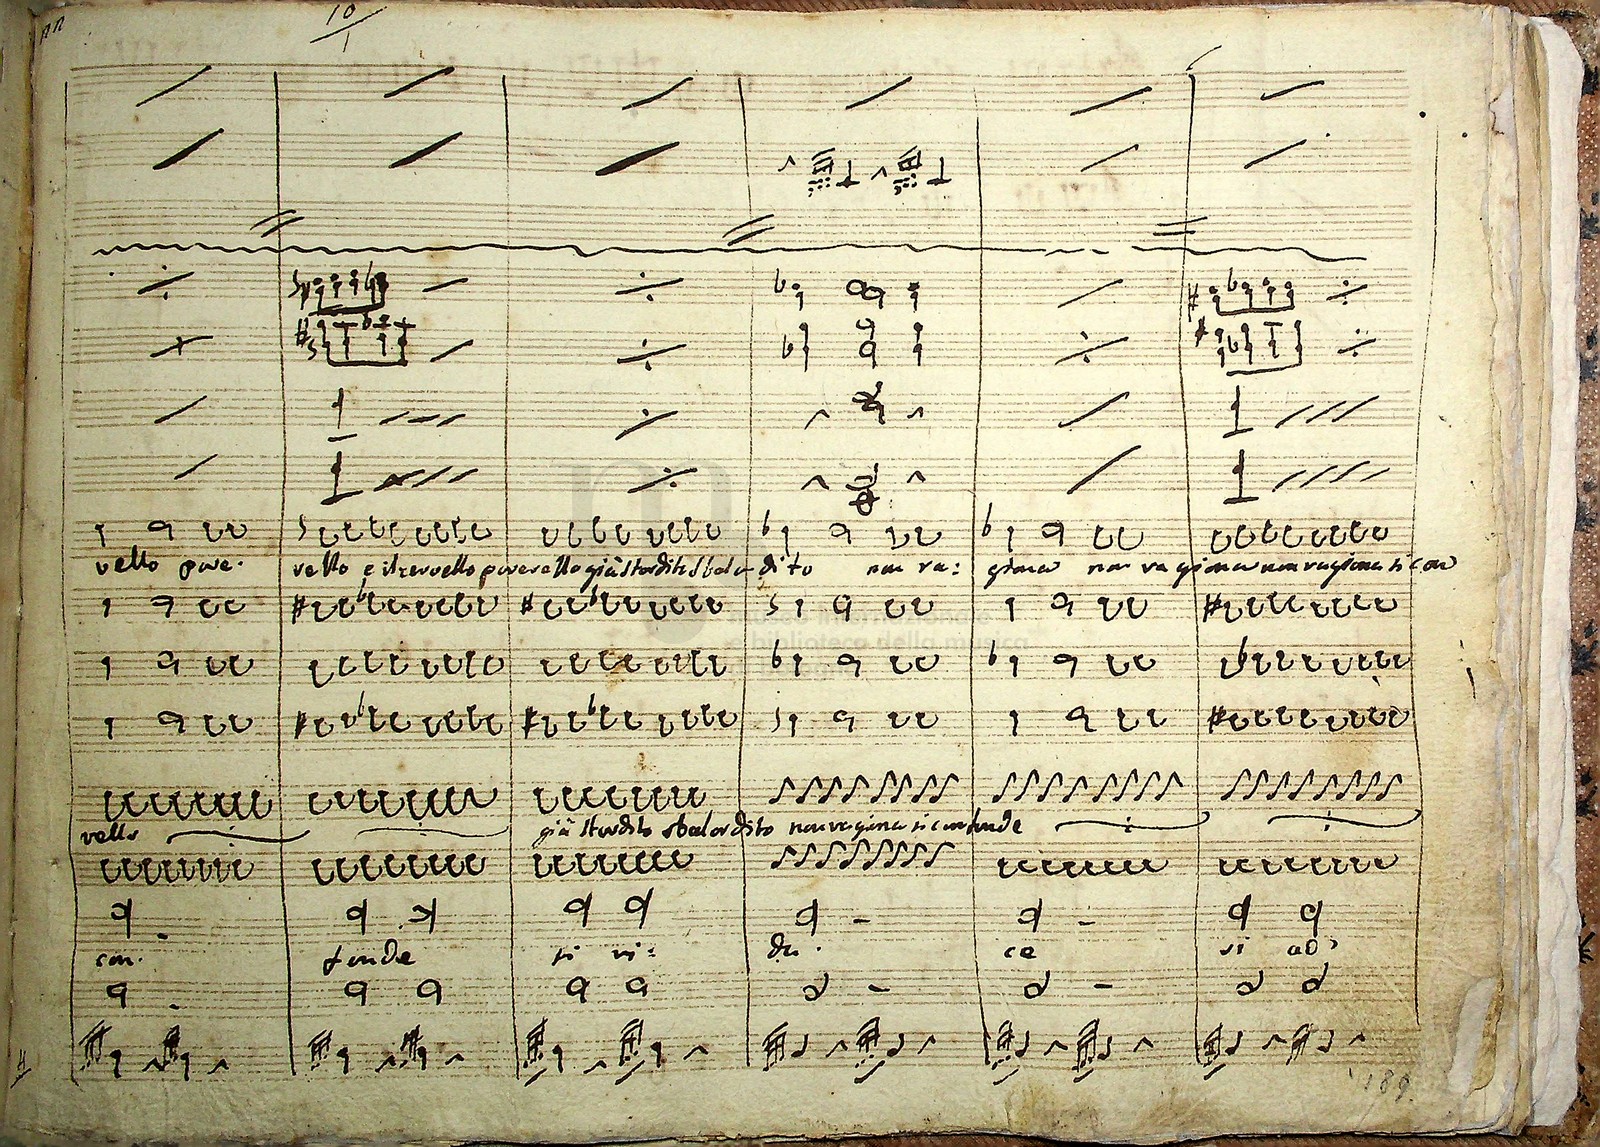 10
1
vello pove.
vello e il cervello poverello già stordito sbalordito non ra: giona non ragiona non ragiona si con
museo internazionale
e biblioteca della musica
vello già stordito sbalordito non ragiona si confonde
con. fonde si ri: du. ce si ad
189.